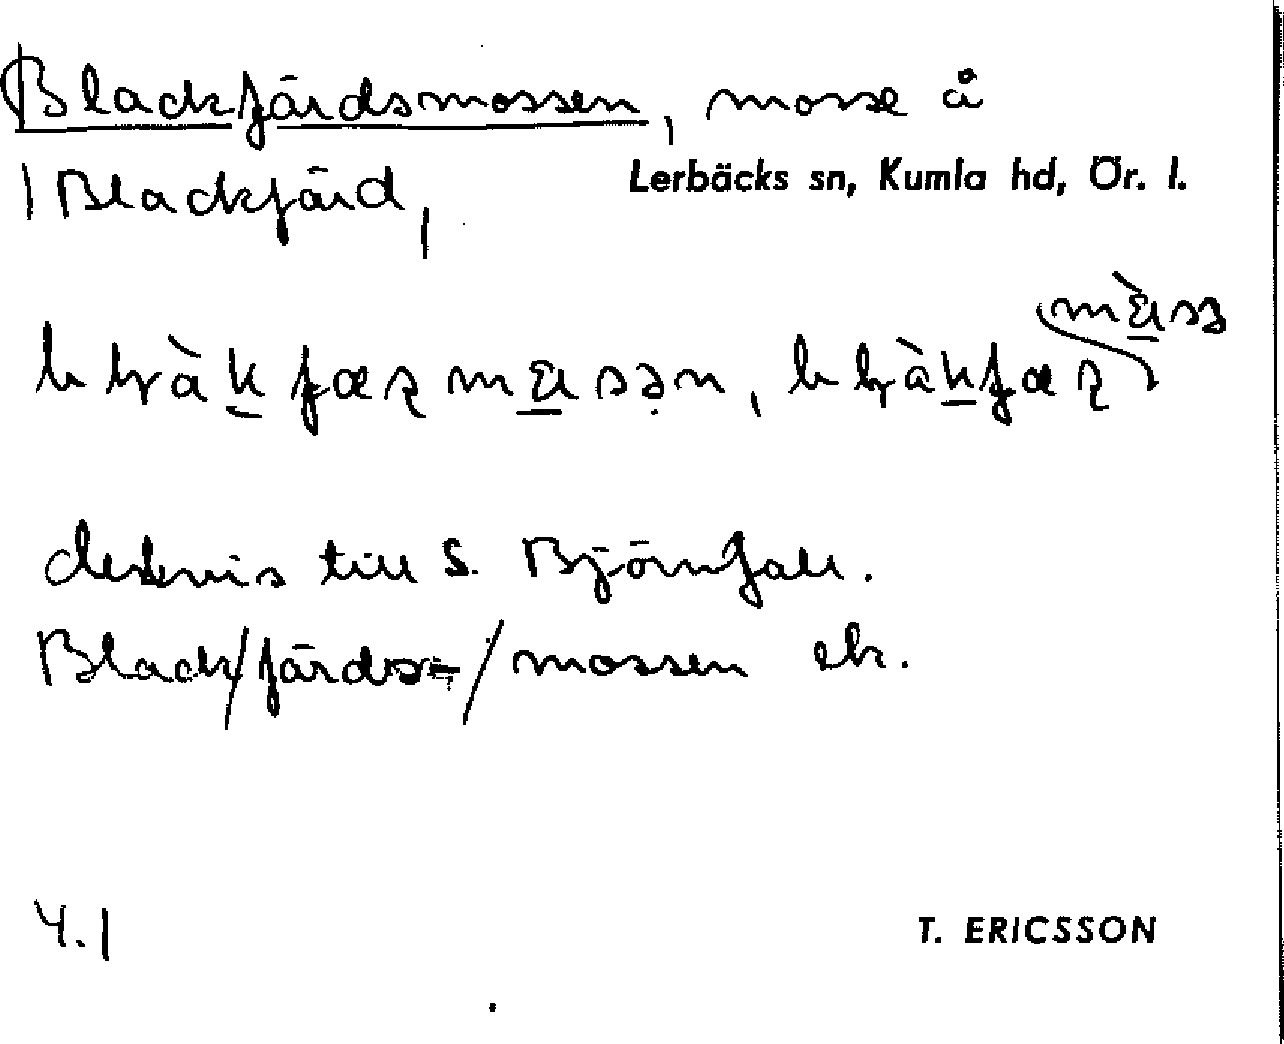 Blackfjärdsmossen, mosse å
Lerbäcks sn, Kumla hd, Ör. l.
| Blackfjärd,
delvis till S. Björnfall.
Black/fjärds-/mossen ek.
4.1
T. ERICSSON